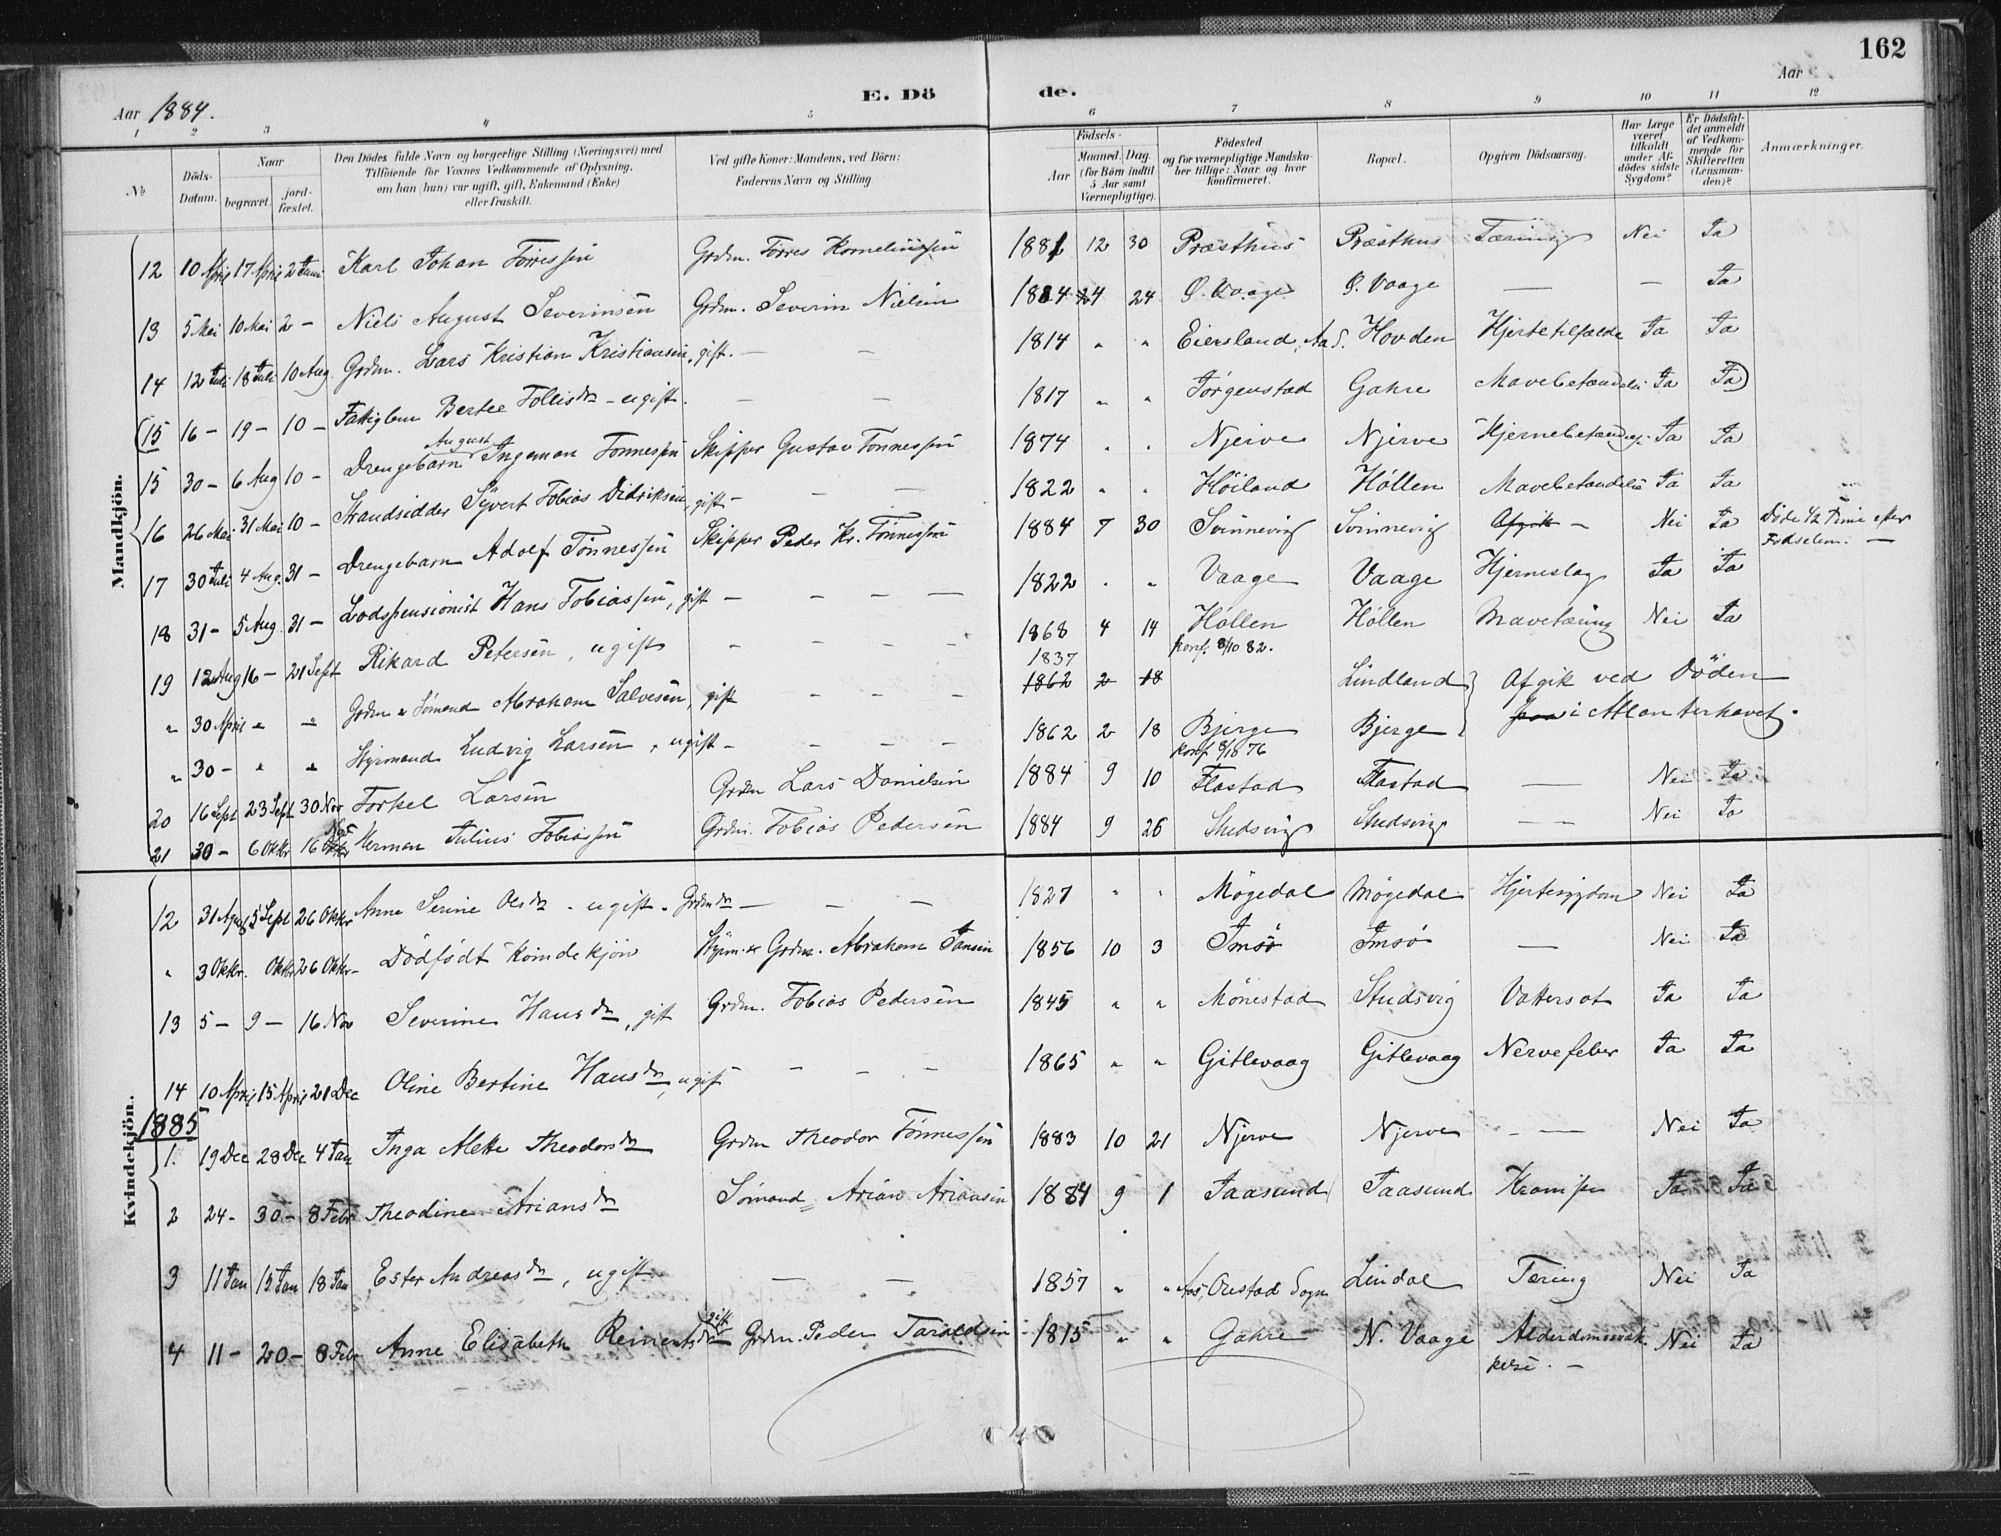 162
Aar 1884. E. Dö de. Aar
1 2 3 4 5 6 7 8 9 10 11 12
No
Döds-Datum.
Naar begravet. jordfæstet.
Den Dödes fulde Navn og borgerlige Stilling (Næringsvei) med Tilföiende for Voxnes Vedkommende af Oplysning, om han (hun) var ugift, gift, Enkemand (Enke) eller fraskilt.
Ved gifte Koner: Mandens, ved Börn: Faderens Navn og Stilling
Födsels-
Aar Maaned. Dag. (for Börn indtil 5 Aar samt Værnepligtige).
Födested og for værnepligtige Mandskaber tillige: Naar og hvor konfirmeret.
Bopæl.
Opgiven Dödsaarsag.
Har Læge været tilkaldt under Afdödes sidste Sygdom?
Er Dödsfaldet anmeldt af Vedkommende for Skifteretten (Lensmanden)?
Anmærkninger.
Mandkjön.
12 10 April 17 April 2 Juni Karl Johan Törressen Grdm. Törres Korneliussen 1881 12 30 Præsthus Præsthus Tæring Nei Ja
13 5 Mai 10 Mai 2 – Niels August Severinsen Grdm. Severin Nielsen 1884 4 24 Ö. Vaage Ö. Vaage — — Ja
14 12 Juli 18 Juli 10 Aug. Grdm. Lars Kristian Kristiansen, gift. — — 1814 " " Eiersland, Aa S. Hovden Hjertetilfælde Ja Ja
(15 16 – 19 – 10 – Fattiglem Berte Tollisdtr – ugift. — — 1817 " " Jörgenstad Gahre Mavebetændelse Ja Ja)
15 30 – 6 Aug 10 – Drengebarn August Ingeman Tönnessen Skipper Gustav Tönnessen 1874 " " Njerve Njerve Hjernebetændelse Ja Ja
16 26 Mai 31 Mai 10 – Strandsidder Syvert Tobias Didriksen, gift – — — 1822 " " Höiland Höllen Mavebetændelse Ja Ja
17 30 Juli 4 Aug. 31 – Drengebarn Adolf Tönnessen Skipper Peder Kr. Tönnessen 1884 7 30 Svinnevig Svinnevig Afgik – Nei Ja Döde 1/2 Time efter Fødselen. —
18 31 – 5 Aug. 31 – Lodspensionist Hans Tobiassen, gift – — — — 1822 " " Vaage Vaage Hjerneslag Ja Ja
19 12 Aug 16 – 21 Sept Rikard Petersen, ugift – – – – 1868 4 14 Höllen Höllen Mavetæring Nei Ja
Konf. 8/10 82.
" 30 April " " Grdm & Sömand Abraham Salvesen, gift – – – 1837 1862 2 18 Lindland Afgik ved Döden
" 30 – " " Styrmand Ludvig Larsen, ugift – – – – 1862 2 18 Bjerge Bjerge paa i Atlanterhavet.
Konf 8/10 76
20 16 Sept 23 Sept 30 Nov Torkel Larsen Grdm Lars Danielsen 1884 9 10 Flastad Flastad — Nei Ja
21 30 – 6 Oktbr 16 Nov Oktbr Herman Julius Tobiassen Grdm. Tobias Pedersen 1884 9 26 Studsvig Studsvig — Nei Ja
Kvindekjön.
12 31 Augs 5 Sept 26 Oktbr Anne Serine Olsdtr – ugift – Grdmdtr — — — 1827 " " Mögedal Mögedal Hjertesygdom Nei Ja
" 3 Oktbr. Oktbr 26 Oktbr – Dödfödt Kvindekjön Styrm. & Grdm. Abraham Jansen 1856 10 3 Imsö Imsö — Nei Ja
13 5 – 9 – 16 Nov Severine Hansdtr, gift Grdm. Tobias Pedersen 1845 " " Mönestad Studsvig Vattersot Ja Ja
14 10 April 15 April 21 Dec Oline Bertine Hansdtr, ugift – – – 1865 " " Gitlevaag Gitlevaag Nervefeber Ja Ja
1885
1. 19 Dec 28 Dec 4 Jan Inga Alette Theodorsdtr Grdm Theodor Tönnessen 1883 10 21 Njerve Njerve – — Nei Ja
2 24 – 30 – 8 Febr Theodine Ariansdtr Sömand Arian Ariansen 1884 9 1 Taasund Taasund Krampe Ja Ja
3 11 Jan 15 Jan 18 Jan Ester Andreasdtr, ugift — — 1857 " " Aas, Örestad Sogn Lindal Tæring Nei Ja
4 11 – 20 – 8 Febr Anne Elisabeth Reinertsdtr gift Grdm. Peder Taraldsen 1815 " " Gahre N. Vaage Alderdomssvak Nei Ja
kelse. –